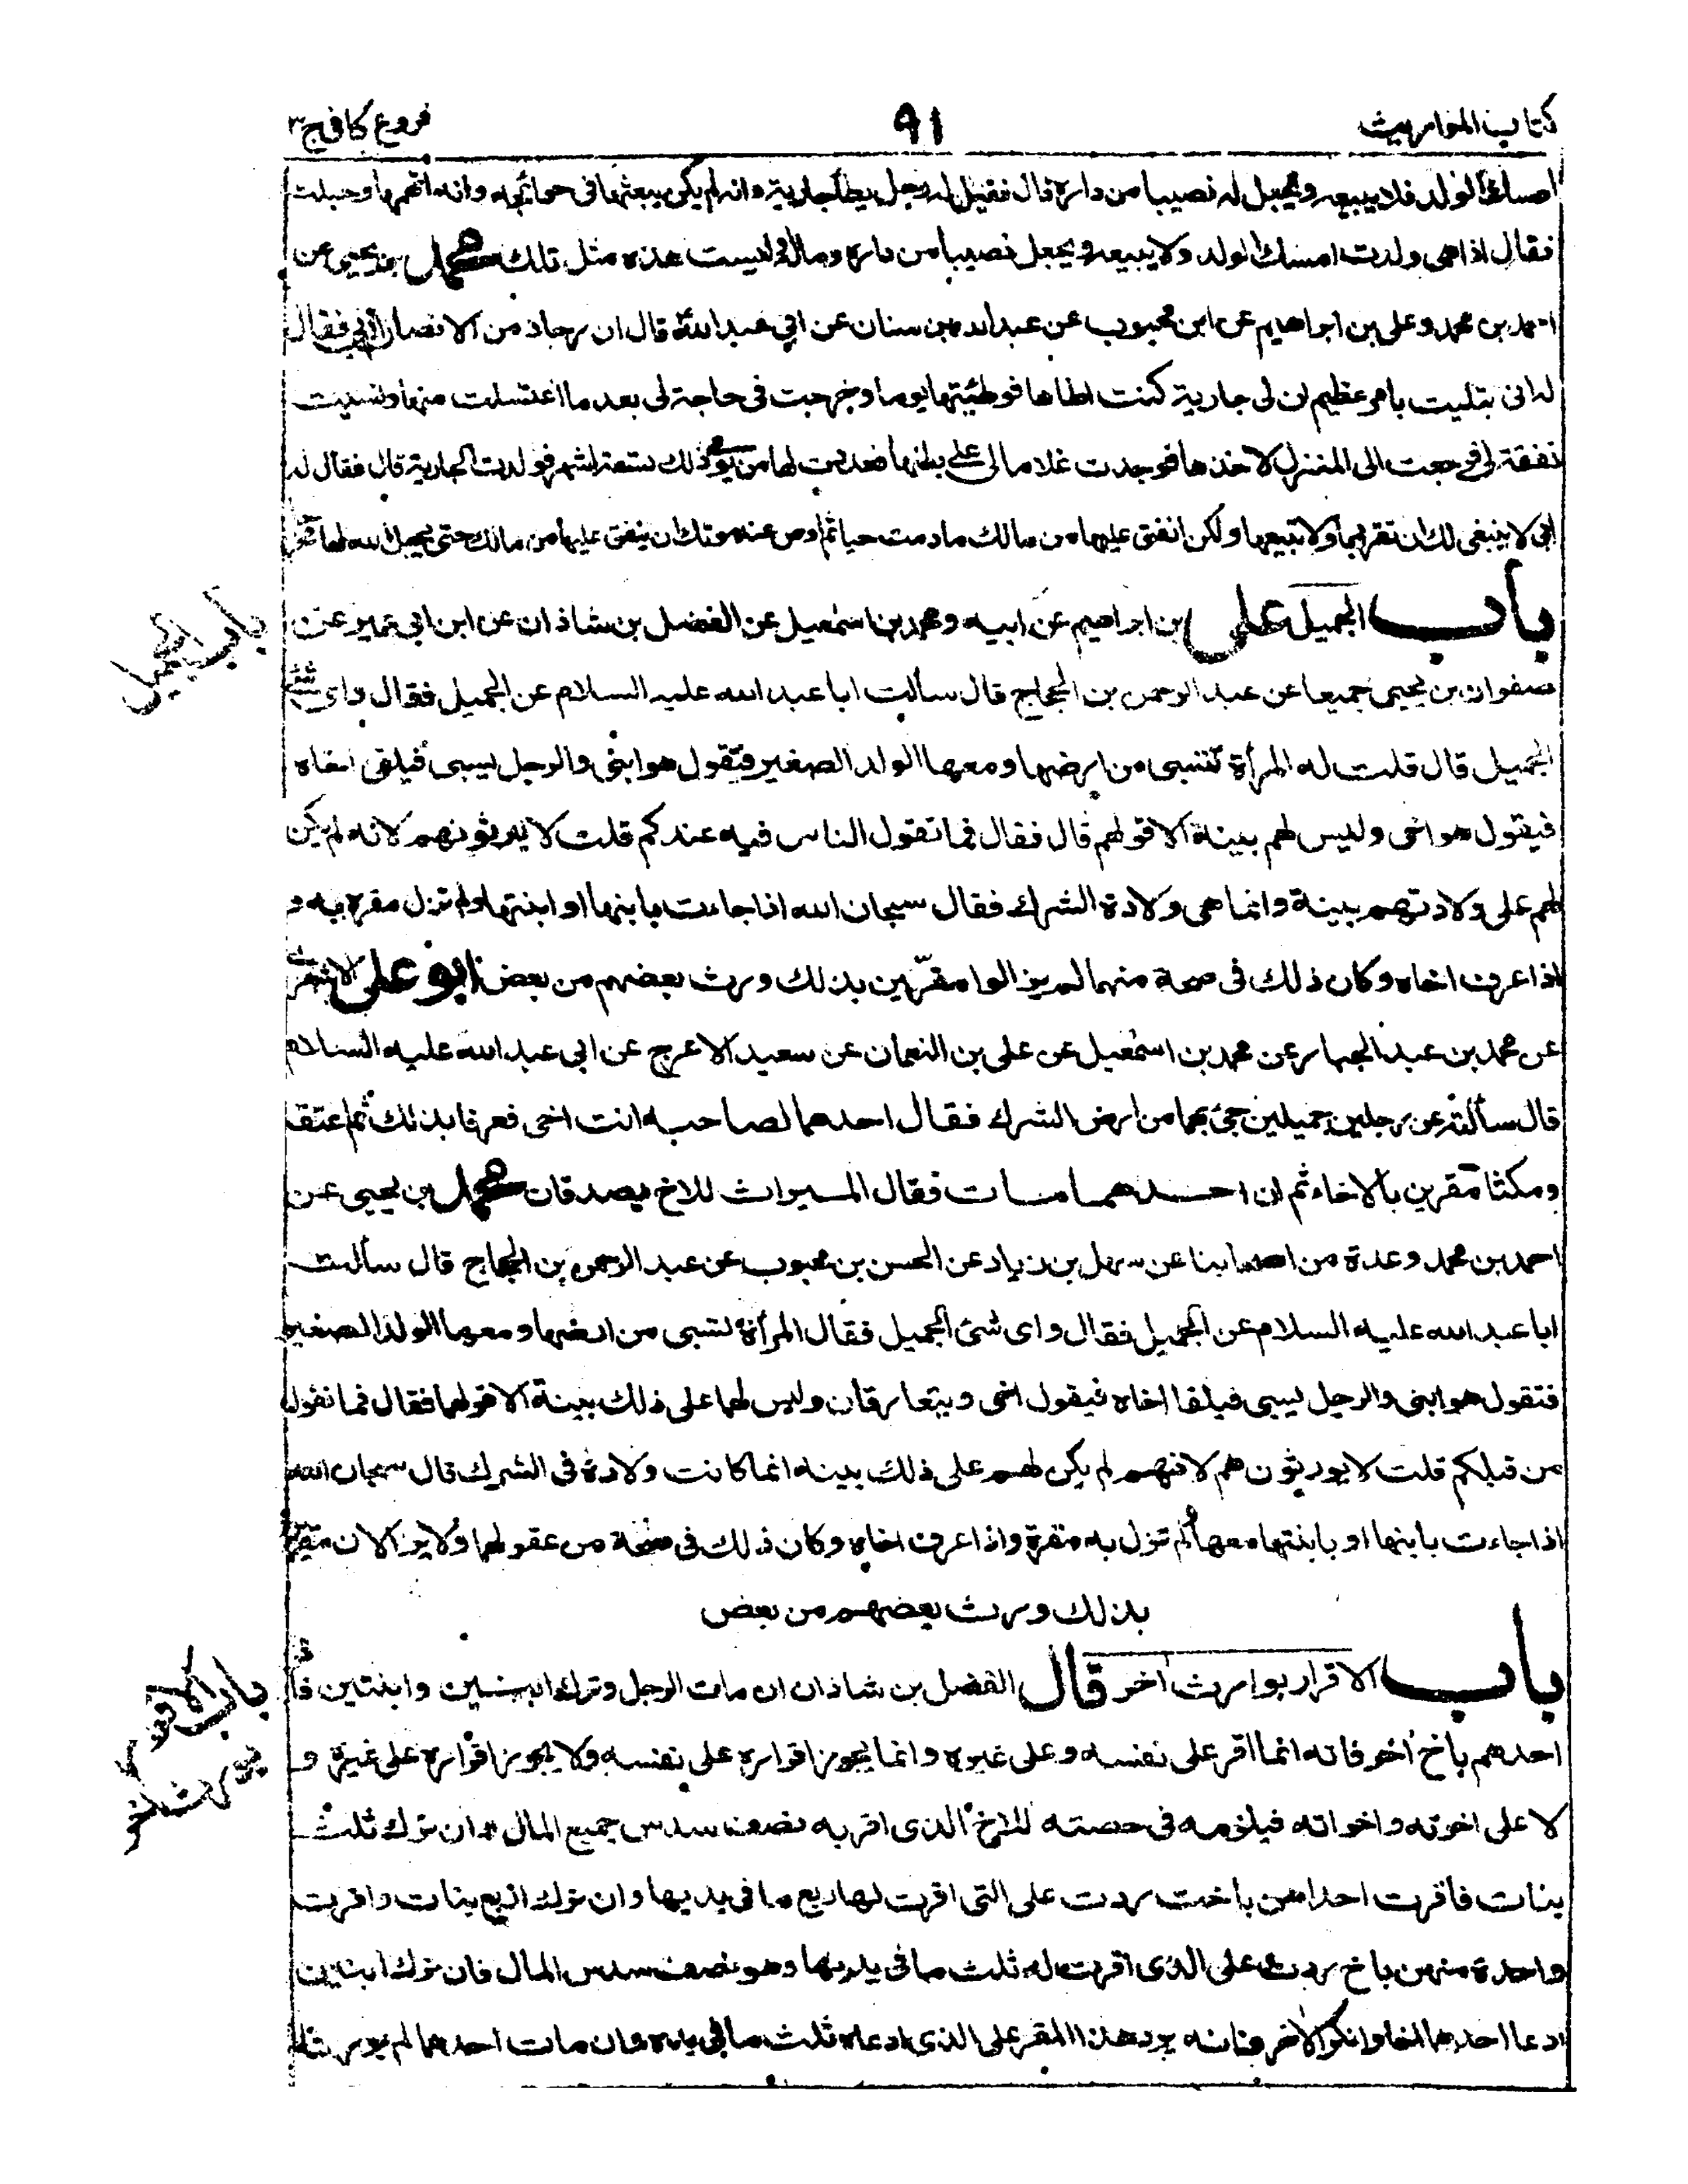 كتاب المواريث
٩١
فروع كافي ج ٣
امسك الولد فلا يبيعه ويجعل له نصيبا من داره قال فقيل له رجل يطأ جارية وانه لم يكن يبعثها في حوائجه وانه اتهمها وحبلت
فقال اذا هي ولدت امسك الولد ولا يبيعه ويجعل نصيبا من داره وماله وليست هذه مثل تلك محمد بن يحيى عن
احمد بن محمد وعلى بن ابراهيم عن ابن محبوب عن عبد الله بن سنان عن ابي عبد الله قال ان رجلا من الانصار اتى ابي فقال
له انى بتليت بامر عظيم ان لى جارية كنت اطاها فوطئتها يوما وخرجت فى حاجة لى بعد ما اغتسلت منها ونسيت
نفقة لى فرجعت الى المنزل لاخذها فوجدت غلامالى على بطنها فعددت لها من يومى ذلك تسعة اشهر فولدت الجارية قال فقال له
ابى لا ينبغى لك ان تقربها ولا تبيعها ولكن انفق عليها من مالك ما دمت حيا ثم اوص عند موتك ان ينفق عليها من مالك حتى يجعل الله لها مخرجا
باب الحميل على بن ابراهيم عن ابيه ومحمد بن اسمعيل عن الفضل بن شاذان عن ابن ابى عمير عن
باب الحميل
صفوان بن يحيى جميعا عن عبد الرحمن بن الحجاج قال سألت ابا عبد الله عليه السلام عن الحميل فقال واى شئ
الحميل قال قلت له المرأة تسبى من ارضها ومعها الولد الصغير فتقول هو ابنى والرجل يسبى فيلقى اخاه
فيقول هو اخى وليس لهم بينة الا قولهم قال فقال فما تقول الناس فيه عندكم قلت لا يورثونهم لانه لم يكن
لهم على ولادتهم بينة وانما هى ولادة الشرك فقال سبحان الله اذا جاءت بابنها او ابنتها ولم تزل مقرة به و
اذا عرف اخاه وكان ذلك فى صحة منهما لم يزالوا مقرين بذلك ورث بعضهم من بعض ابو على الاشعرى
عن محمد بن عبد الجبار عن محمد بن اسمعيل عن على بن النعمان عن سعيد الاعرج عن ابى عبد الله عليه السلام
قال سألته عن رجلين حميلين جئ بهما من ارض الشرك فقال احدهما لصاحبه انت اخى فعرفا بذلك ثم اعتقا
ومكثا مقرين بالاخاء ثم ان احدهما مات فقال الميراث للاخ يصدقان محمد بن يحيى عن
احمد بن محمد وعدة من اصحابنا عن سهل بن زياد عن الحسن بن محبوب عن عبد الرحمن بن الحجاج قال سألت
ابا عبد الله عليه السلام عن الحميل فقال واى شئ الحميل فقال المرأة تسبى من ارضها ومعها الولد الصغير
فتقول هو ابنى والرجل يسبى فيلقا اخاه فيقول اخى ويتعارفان وليس لهما على ذلك بينة الا قولهما فقال فما تقول
من قبلكم قلت لا يورثونهم لانهم لم يكن لهم على ذلك بينه انما كانت ولادة فى الشرك قال سبحان الله
اذا جاءت بابنها او بابنتها معها لم تزل به مقرة واذا عرف اخاه وكان ذلك فى صحة من عقولهما ولا يزالان مقرين
بذلك ورث بعضهم من بعض
باب الاقرار بوارث اخر قال الفضل بن شاذان ان مات الرجل وترك ابنين وابنتين فاقر
باب الاقرار بوارث اخر
احدهم باخ اخر فانه انما اقر على نفسه وعلى غيره وانما يجوز اقراره على نفسه ولا يجوز اقراره على غيره و
لا على اخوته واخواته فيلزمه فى حصته للاخ الذى اقر به نصف سدس جميع المال وان ترك ثلث
بنات فاقرت احداهن باخت ردت على التى اقرت لها ربع ما فى يديها وان ترك اربع بنات واقرت
واحدة منهن باخ ردت على الذى اقرت له ثلث ما فى يديها وهو نصف سدس المال فان ترك ابنين
ادعا احدهما اخا وانكر الاخر فانه يرد هذا المقر على الذى ادعاه ثلث ما فى يده وان مات احدهما لم يورثه